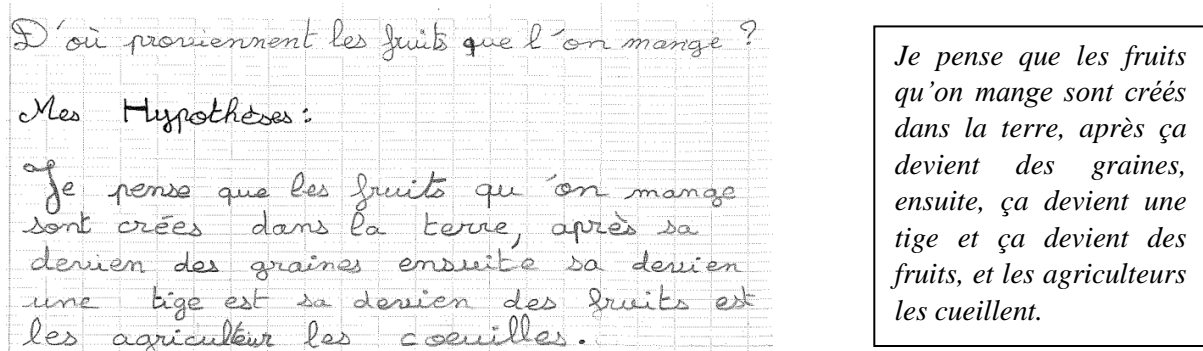 D'où proviennent les fruits que l'on mange ?
Mes Hypothèses :
Je pense que les fruits qu'on mange
sont créés dans la terre, après sa
devien des graines ensuite sa devien
une tige est sa devien des fruits est
les agriculteur les coeuilles.
Je pense que les fruits
qu'on mange sont créés
dans la terre, après ça
devient des graines,
ensuite, ça devient une
tige et ça devient des
fruits, et les agriculteurs
les cueillent.